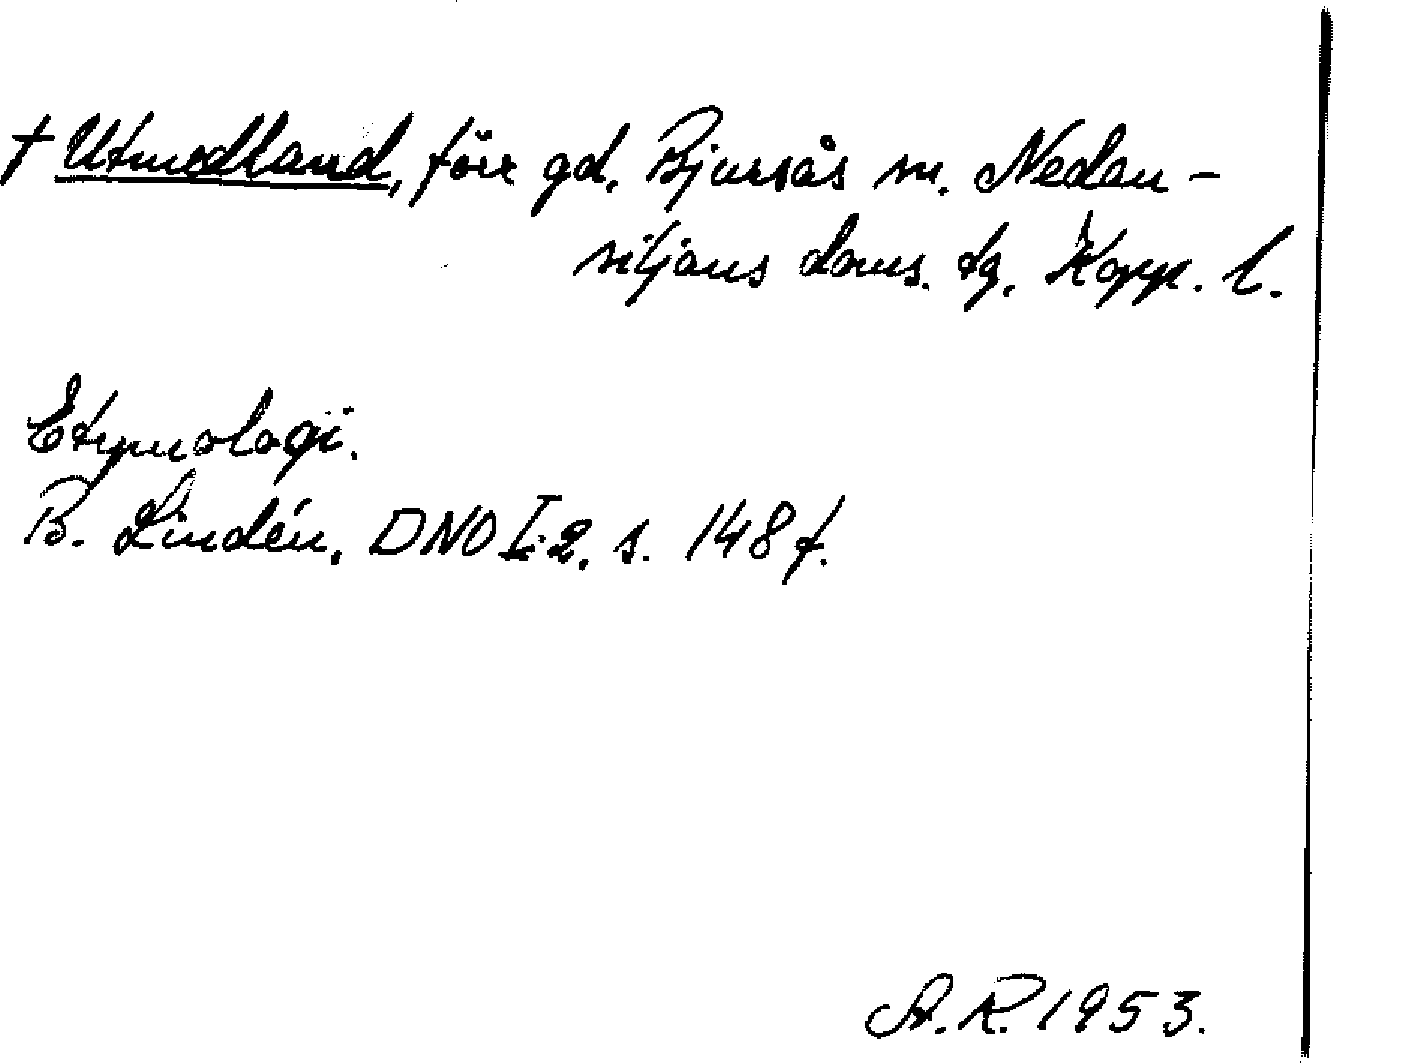 † Utmedland, förr gd, Bjursås sn. Nedan-
siljans doms. tg. Kopp. l.
Etymologi.
B. Lindén, DNO I:2, s. 148 f.
A.R. 1953.